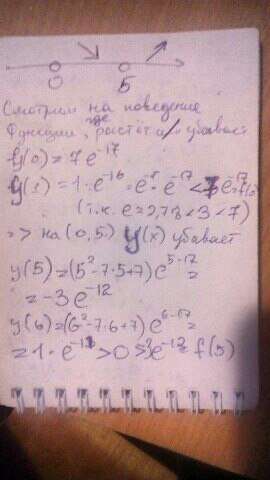 0 5
Смотрим на поведение
где
функции, растёт и/и убывает
f(0) = 7e^-17
y(1) = 1·e^-16 = e^1·e^-17 < 7e^-17 = f(0)
(т.к. e = 2,73 < 3 < 7)
=> на (0,5) y(x) убывает
y(5) = (5²-7·5+7)e^5-17 =
= -3e^-12
y(6) = (6²-7·6+7)e^6-17 =
= 1·e^-11 > 0 > -3e^-12 = f(5)